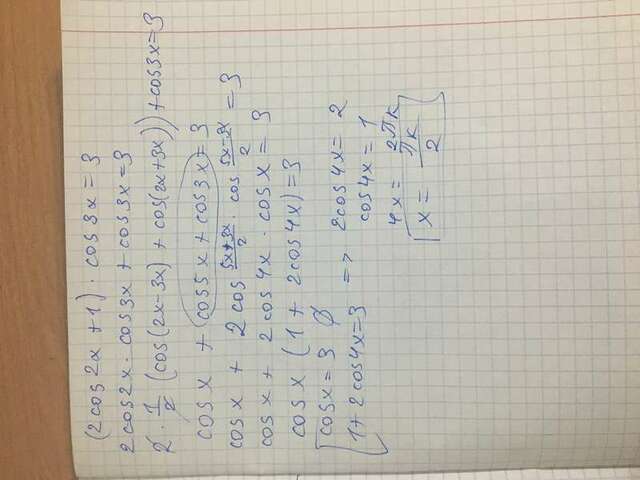 (2cos2x + 1) · cos3x = 3
2cos2x · cos3x + cos3x = 3
2 · 1/2 (cos(2x-3x) + cos(2x+3x)) + cos3x = 3
cosx + cos5x + cos3x = 3
cosx + 2cos (5x+3x)/2 · cos (5x-3x)/2 = 3
cosx + 2cos4x · cosx = 3
cosx (1 + 2cos4x) = 3
[cosx = 3 ∅
1 + 2cos4x = 3 => 2cos4x = 2
cos4x = 1
4x = 2πk
x = πk/2